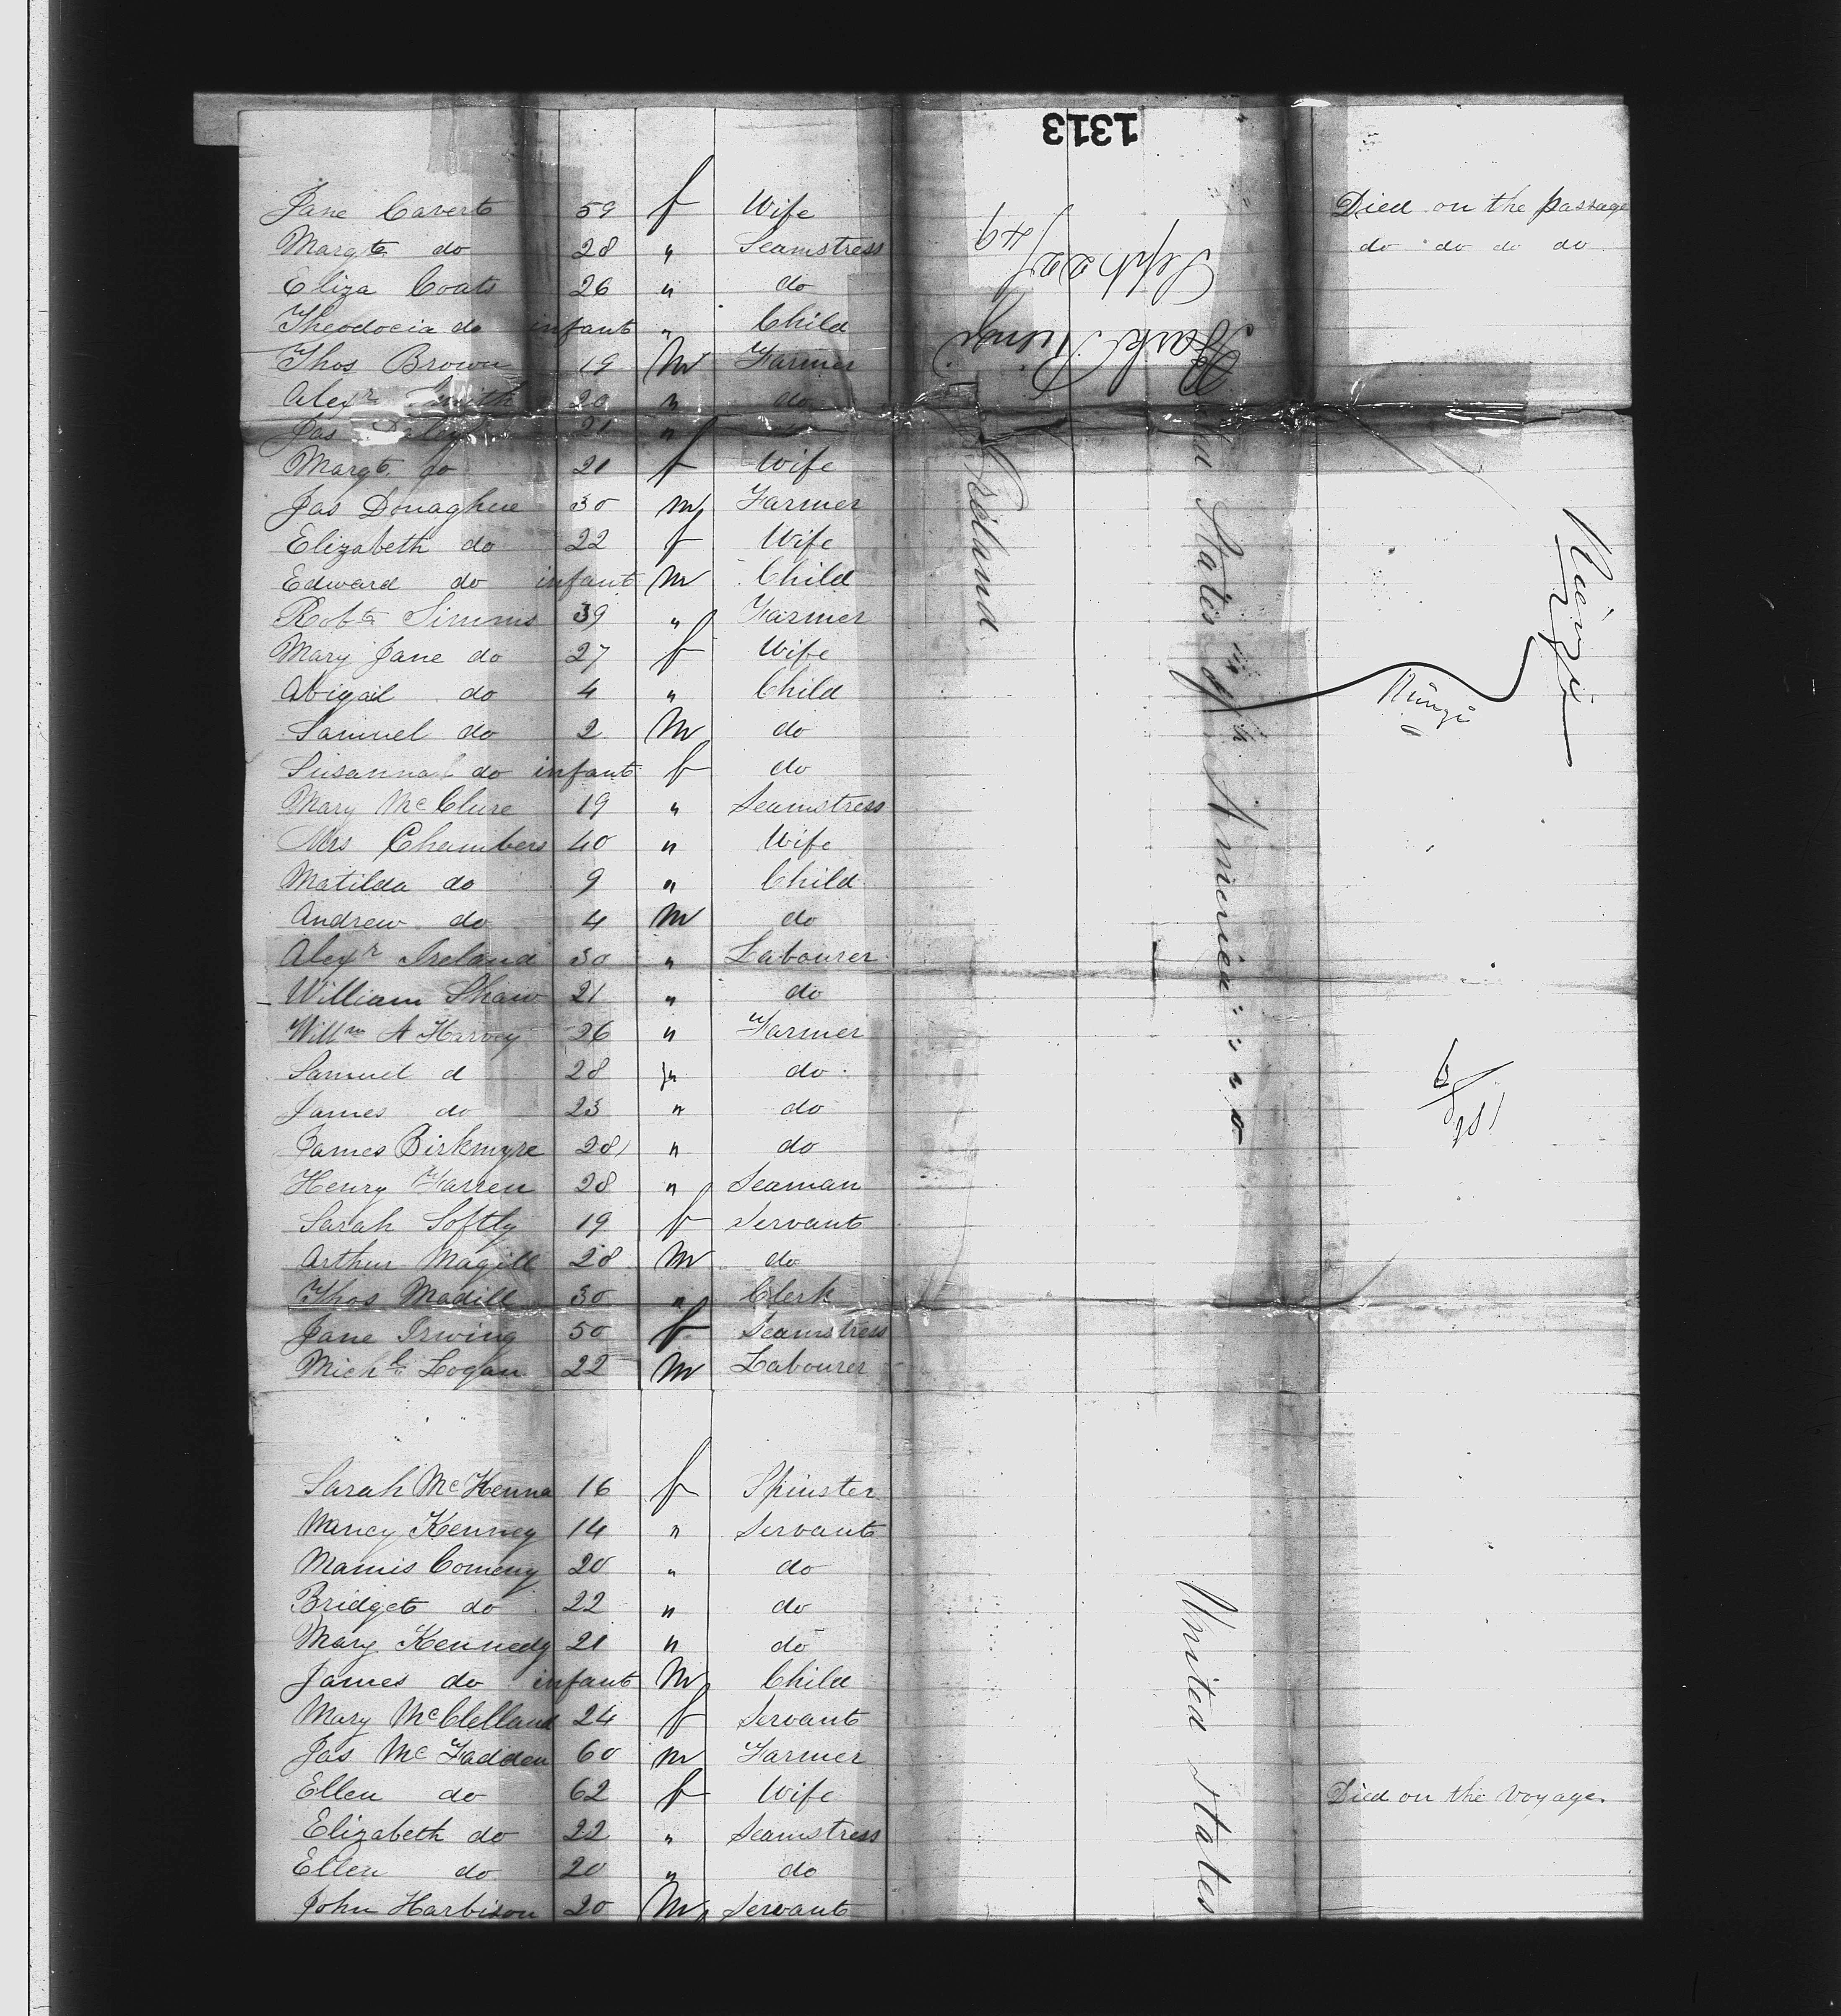 1313
Jane Cavert 59 f Wife Died on the passage
Margt do 28 " Seamstress do do do do
Eliza Coats 26 " do
Theodocia do infant " Child
Thos Brown 19 M Farmer
Alexr Smith 20 " do
Jas 21 "
Margt do 21 f Wife
Jas Donaghue 30 M Farmer
Elizabeth do 22 f Wife
Edward do infant M Child
Robt Simms 39 " Farmer
Mary Jane do 27 f Wife
Abigail do 4 " Child
Samuel do 2 M do
Susanna do infant f do
Mary McClure 19 " Seamstress
Mrs Chambers 40 " Wife
Matilda do 9 " Child
Andrew do 4 M do
Alexr Ireland 30 " Labourer
William Shaw 21 " do
Willm A Harvey 26 " Farmer
Samuel d 28 " do
James do 23 " do
James Birkmyre 28 " do
Henry Farren 28 " Seaman
Sarah Softly 19 f Servant
Arthur Magill 28 M do
Thos Madill 30 " Clerk
Jane Irwing 50 f Seamstress
Michl Logan 22 M Labourer
Sarah McKenna 16 f Spinster
Nancy Kenney 14 " Servant
Mamis Comeny 20 " do
Bridget do 22 " do
Mary Kennedy 21 " do
James do infant M Child
Mary McClelland 24 f Servant
Jas McFadden 60 M Farmer
Ellen do 62 f Wife Died on the Voyage.
Elizabeth do 22 " Seamstress
Ellen do 20 " do
John Harbison 20 M Servant
Ireland
States of America
United States
Bark Riengi
Sept 22/49
Rienzi